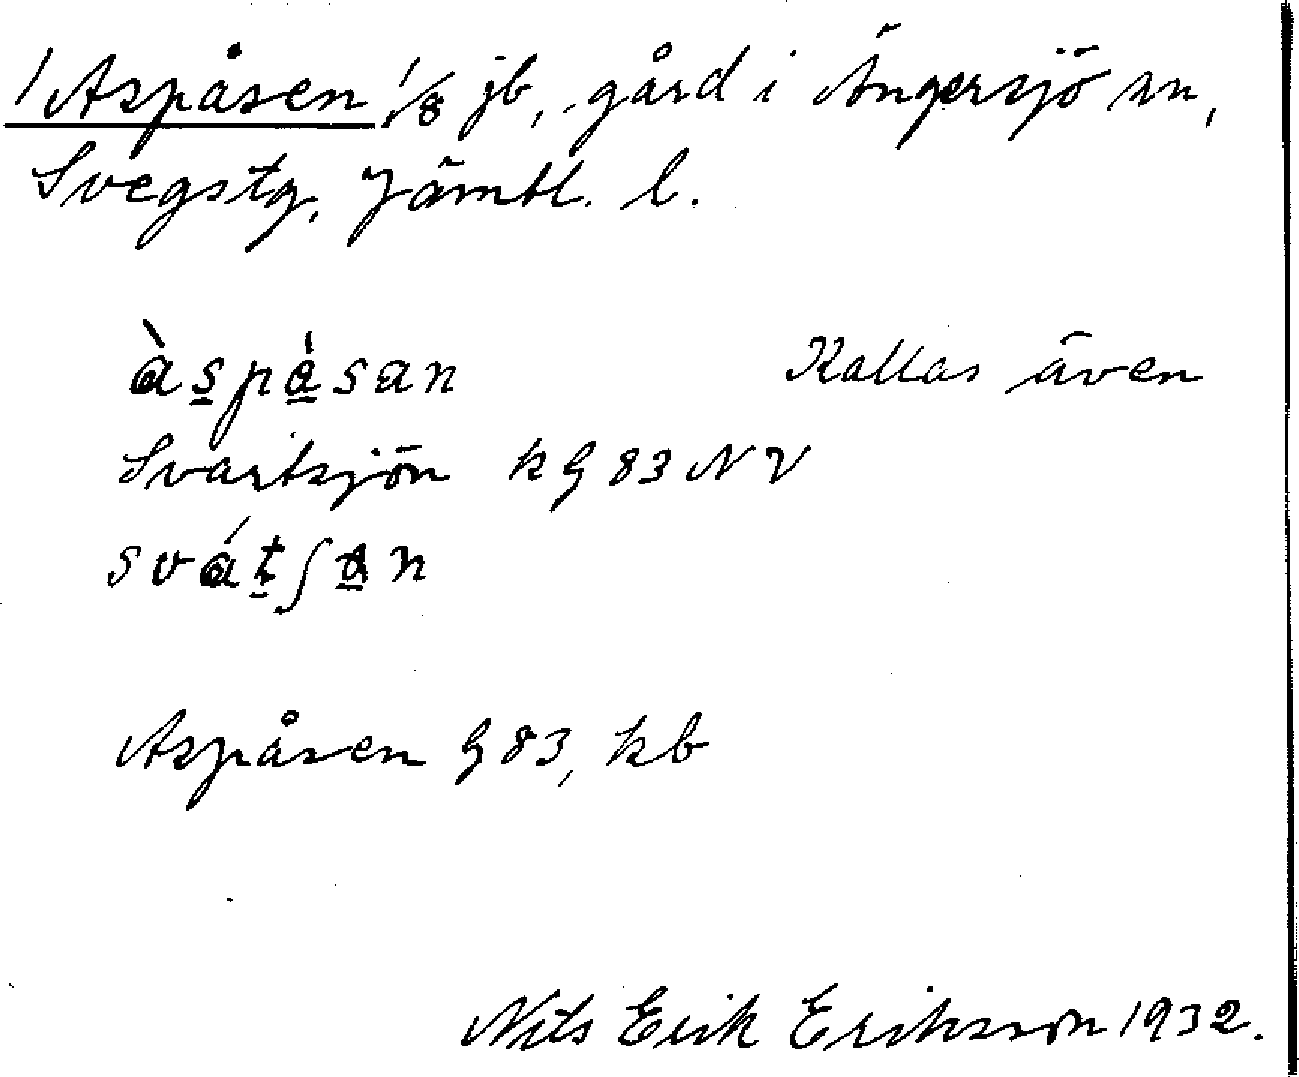 /Aspåsen 1/8 jb, gård i Ängersjö sn,
Svegstg, Jämtl. l.
às̱pá̱san Kallas även
Svartsjön k G 83 NV
sváṯʃa̱n
Aspåsen G 83, kb
Nils Erik Eriksson 1932.